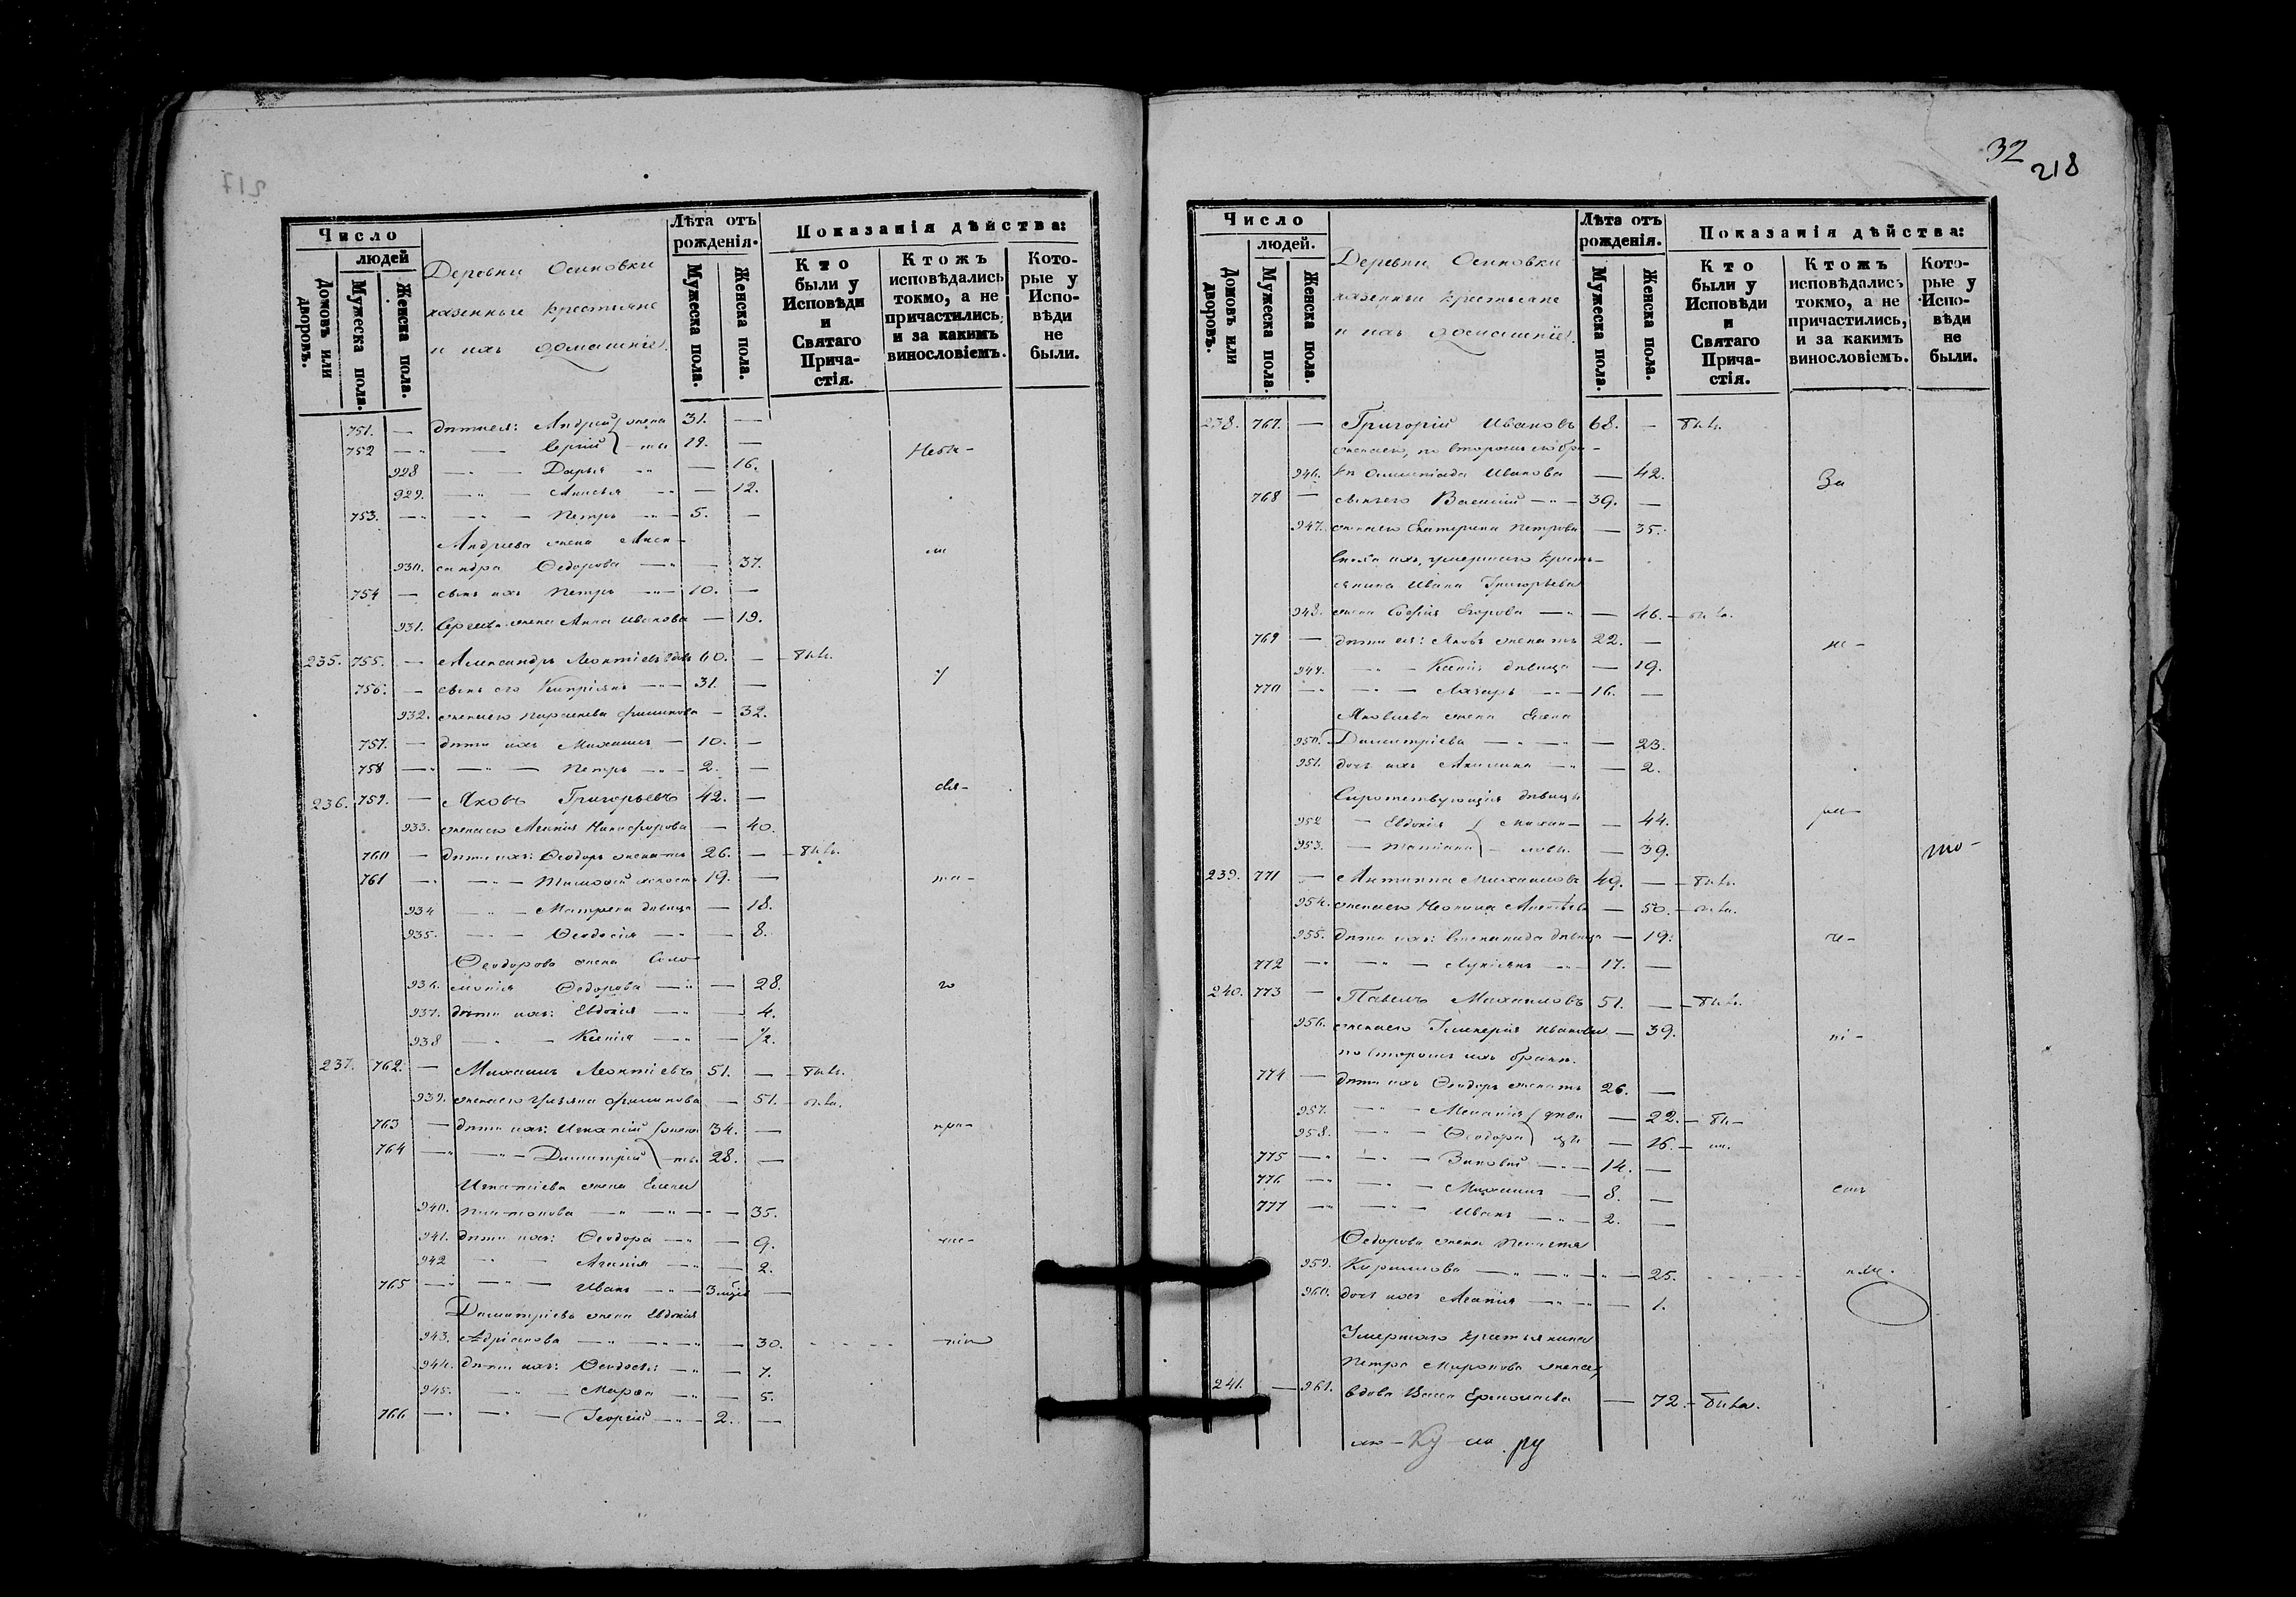 217
Число
людей
Домовъ или дворовъ.
Мужеска пола.
Женска пола.
Деревни Осиновки
казенные крестьяне
и ихъ домашніе.
Лѣта отъ рожденія.
Мужеска пола.
Женска пола.
Показанія дѣйства:
Кто были у Исповѣди и Святаго Причастія.
Ктожъ исповѣдались токмо, а не причастились, и за какимъ винословіемъ.
Которые у Исповѣди не были.
751. — дѣти ея: Андрей жена 31. —
752 — Сергій — ты 19. —
928 — Дарья — 16.
929. — Анисья — 12.
753. — Петръ — 5. —
Андреева жена Алек-
930. сандра Ѳедорова — 37.
754 — сынъ ихъ Петръ — 10. —
931. Сергѣева жена Анна Иванова — 19.
235. 755. — Александръ Леонтіевъ вдовъ 60. — былъ.
756. — сынъ его Кипріянъ — 31. —
932. жена его Параскева Филипова — 32.
757. — дѣти ихъ Михаилъ — 10. —
758 — Петръ — 2. —
236. 759. — Яковъ Григорьевъ 42. —
933. жена его Агапія Никифорова — 40.
760 — дѣти ихъ: Ѳеодоръ женатъ 26. — былъ.
761 — Тимоѳей холостъ 19. —
934 — Матрена дѣвица — 18.
935. — Ѳеодосія — 8.
Ѳеодорова жена Соло-
936. монія Ѳедорова — 28.
937. дѣти ихъ: Евдокія — 4.
938 — Ксенія — 1/2.
237. 762. — Михаилъ Леонтіевъ 51. — былъ.
939. жена его Ульяна Филипова — 51. — была.
763 — дѣти ихъ: Игнатій жена 34. —
764 — Димитрій — ты 28. —
Игнатіева жена Елена
940. Платонова — 35.
941. дѣти ихъ: Ѳеодора — 9.
942 — Агапія — 2.
765 — Иванъ — 3 мѣся —
Димитріева жена Евдокія
943. Адріанова — 30.
944. дѣти ихъ: Ѳеодосія — 7.
945. — Марѳа — 5.
766 — Георгій — 2. —
32
218
Число
людей.
Домовъ или дворовъ.
Мужеска пола.
Женска пола.
Деревни Осиновки
казенные крестьяне
и ихъ домашніе.
Лѣта отъ рожденія.
Мужеска пола.
Женска пола.
Показанія дѣйства:
Кто были у Исповѣди и Святаго Причастія.
Ктожъ исповѣдались токмо, а не причастились, и за какимъ винословіемъ.
Которые у Исповѣди не были.
238. 767. — Григорій Ивановъ 68. — былъ.
жена его, по второмъ его бра-
946. кѣ Олимпіада Иванова — 42.
768 — сынъ его Василій — 39. —
947. жена его Екатерина Петрова — 35.
Сноха ихъ, умершаго кресть-
янина Ивана Григорьева
948. жена Софія Егорова — 46. — была.
769 — дѣти ея: Яковъ женатъ 22. —
949. — Ксенія дѣвица — 19.
770 — Лазарь — 16. —
Яковлева жена Елена
950. Димитріева — 23.
951. дочь ихъ Акилина — 2.
Сиротствующія дѣвицы
952 — Евдокія Михаи- — 44.
953. — Татіана — ловы. — 39.
239. 771 — Антипа Михаиловъ 49. — былъ.
954. жена его Неонила Алексѣева — 50. — была.
955. дѣти ихъ: Степанида дѣвица — 19.
772 — Лукіянъ — 17. —
240. 773 — Павелъ Михаиловъ 51. — былъ.
956. жена его Гликерія Иванова — 39.
по второмъ ихъ бракѣ.
774 — дѣти ихъ Ѳеодоръ женатъ 26. —
957. — Меланія дѣви — 22. — бы-
958. — Ѳеодора цы — 16. — ли.
775 — Зиновій — 14. —
776 — Михаилъ — 8. —
777 — Иванъ — 2. —
Ѳедорова жена Пелагея
959. Кирилова — 25.
960. дочь ихъ Агапія — 1.
Умершаго крестьянина
Петра Миронова жена,
241. — 961. вдова Васса Ермолаева — 72. — была.